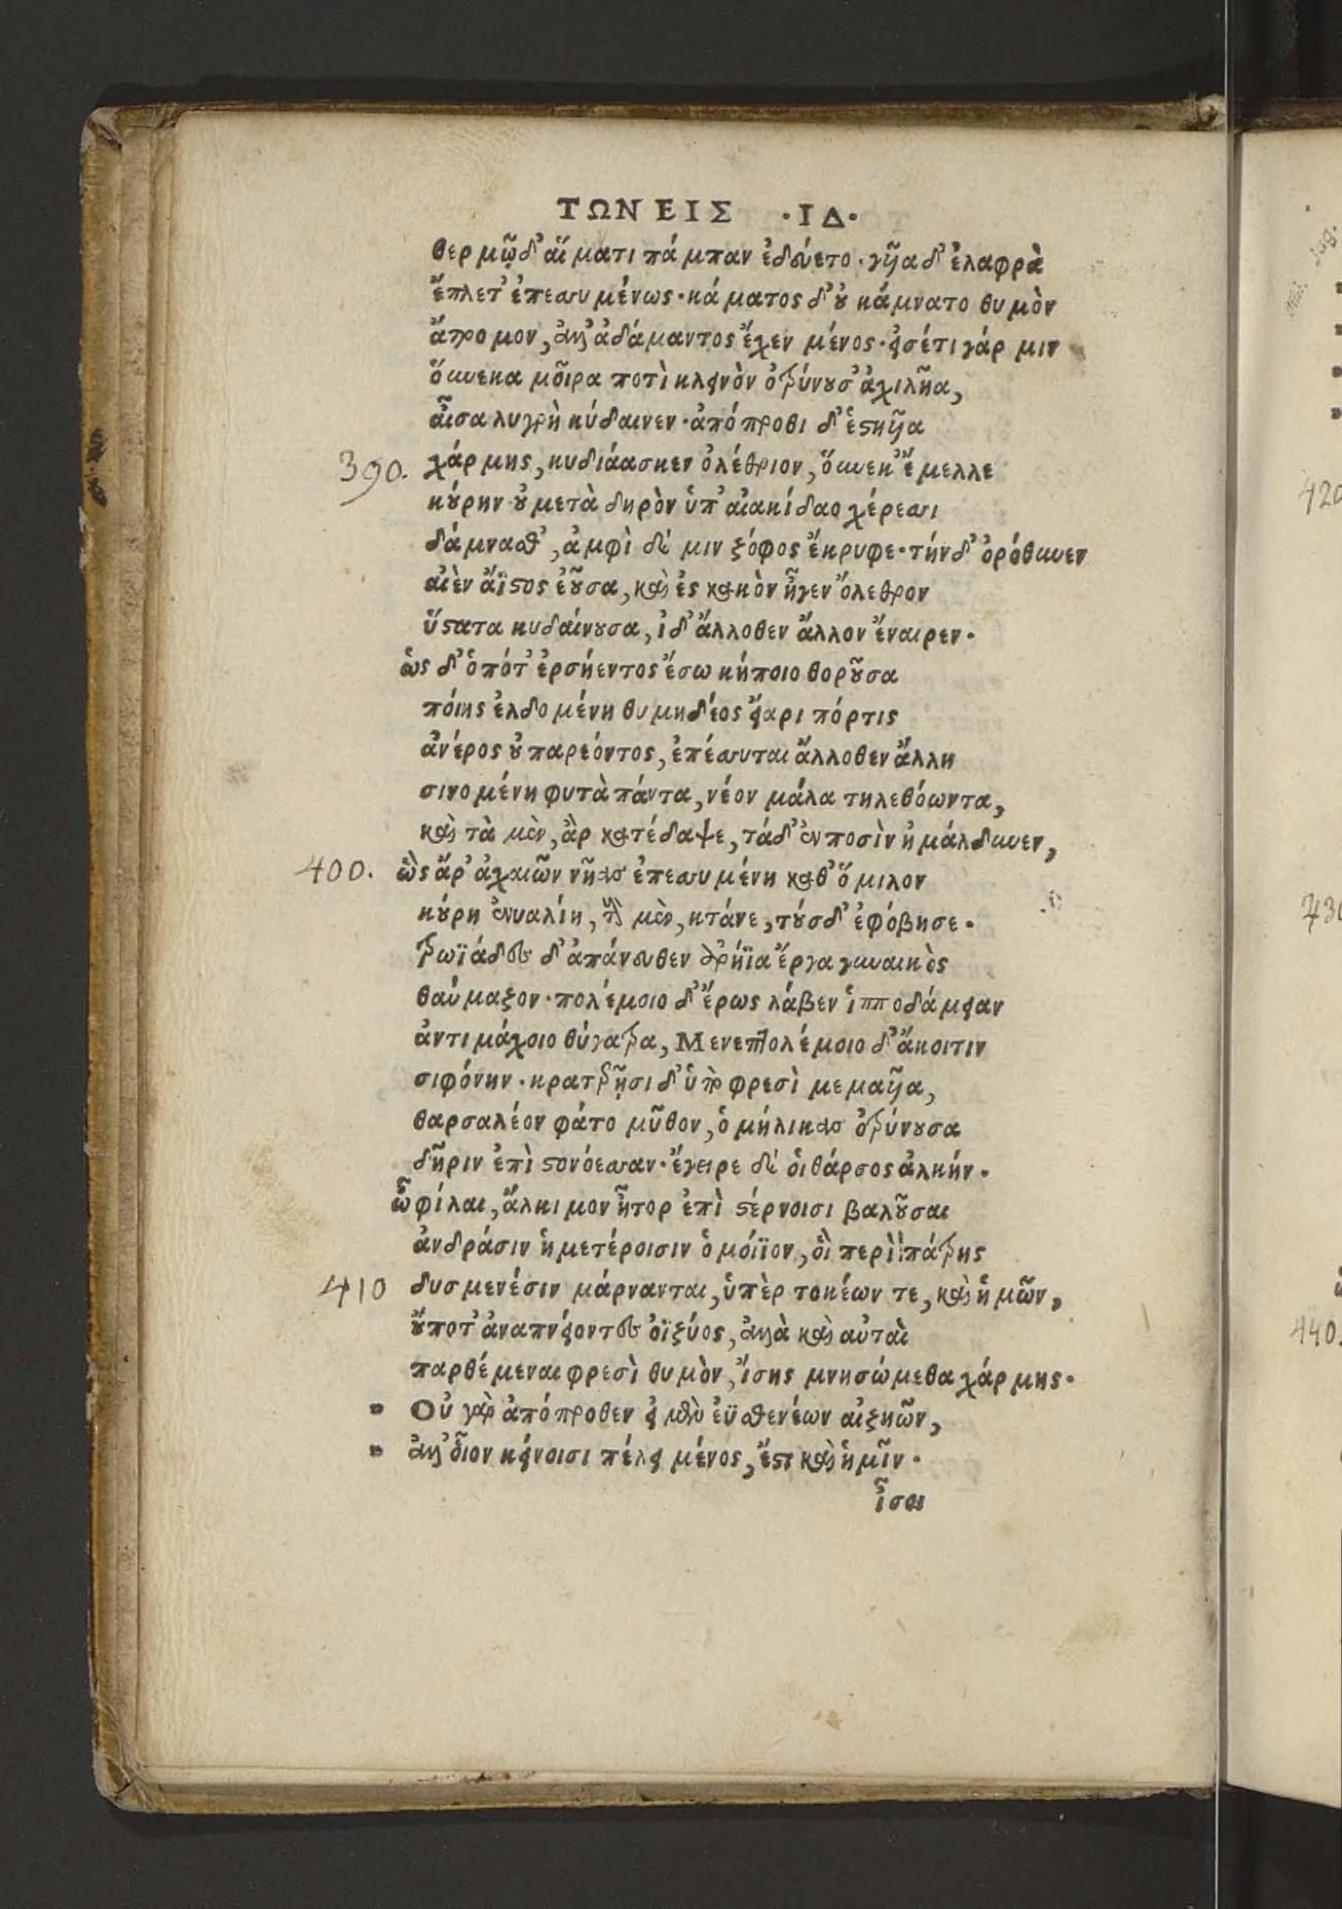 ΤΩΝ ΕΙΣ ·ΙΔ·
θερμῷ δ' αἵματι πάμπαν ἐδεύετο· γῆα δ' ἐλαφρὰ
ἔπλετ' ἐπεσσυμένως· κάματος δ' οὐ κάμνατο θυμὸν
ἄτρομον, ἀλλ' ἀδάμαντος ἔχεν μένος· εἰσέτι γάρ μιν
οὕνεκα μοῖρα ποτὶ κλεινὸν ὀτρύνουσ' ἀχιλῆα,
αἶσα λυγρὴ κύδαινεν· ἀπόπροθι δ' ἑστηῖα
390. χάρμης, κυδιάασκεν ὀλέθριον, οὕνεκ' ἔμελλε
κούρην οὐ μετὰ δηρὸν ὑπ' αἰακίδαο χέρεσσι
δάμνασθ', ἀμφὶ δέ μιν ζόφος ἔκρυφε· τήν δ' ὀρόθυνεν
αἰὲν ἄϊστος ἐοῦσα, καὶ ἐς κακὸν ἦγεν ὄλεθρον
ὕστατα κυδαίνουσα, ἰδ' ἄλλοθεν ἄλλον ἔναιρεν·
ὡς δ' ὁπότ' ἐρσήεντος ἔσω κήποιο θοροῦσα
πόιης ἐλδομένη θυμηδέος εἴαρι πόρτις
ἀνέρος οὐ παρεόντος, ἐπέσσυται ἄλλοθεν ἄλλη
σινομένη φυτὰ πάντα, νέον μάλα τηλεθόωντα,
καὶ τὰ μὲν, ἂρ κατέδαψε, τάδ' ἐν ποσὶν ἠμάλδυνεν,
400. ὣς ἄρ' ἀχαιῶν νῆας ἐπεσσυμένη καθ' ὅμιλον
κούρη ἐνυαλίη, τοὺς μὲν, κτάνε, τούσδ' ἐφόβησε·
τρωϊάδες δ' ἀπάνευθεν ἀρήϊα ἔργα γυναικὸς
θαύμαζον· πολέμοιο δ' ἔρως λάβεν ἱπποδάμειαν
ἀντιμάχοιο θύγατρα, Μενεπτολέμοιο δ' ἄκοιτιν
σιφόνην· κρατερῇσι δ' ὑπὸ φρεσὶ μεμαῆα,
θαρσαλέον φάτο μῦθον, ὁμήλικας ὀτρύνουσα
δῆριν ἐπὶ στονόεσσαν· ἔγειρε δέ οἱ θάρσος ἀλκήν·
ὦ φίλαι, ἄλκιμον ἦτορ ἐπὶ στέρνοισι βαλοῦσαι
ἀνδράσιν ἡμετέροισιν ὁμοίϊον, οἳ περὶ πάτρης
410 δυσμενέσιν μάρνανται, ὑπὲρ τοκέων τε, καὶ ἡμῶν,
οὔποτ' ἀναπνείοντες ὀϊζύος, ἀλλὰ καὶ αὐταὶ
παρθέμεναι φρεσὶ θυμὸν, ἴσης μνησώμεθα χάρμης·
" Οὐ γὰρ ἀπόπροθεν εἰμὲν ἐϋσθενέων αἰζηῶν,
" ἀλλ' οἷον κείνοισι πέλει μένος, ἔστι καὶ ἡμῖν·
ἶσοι
420
430
440.